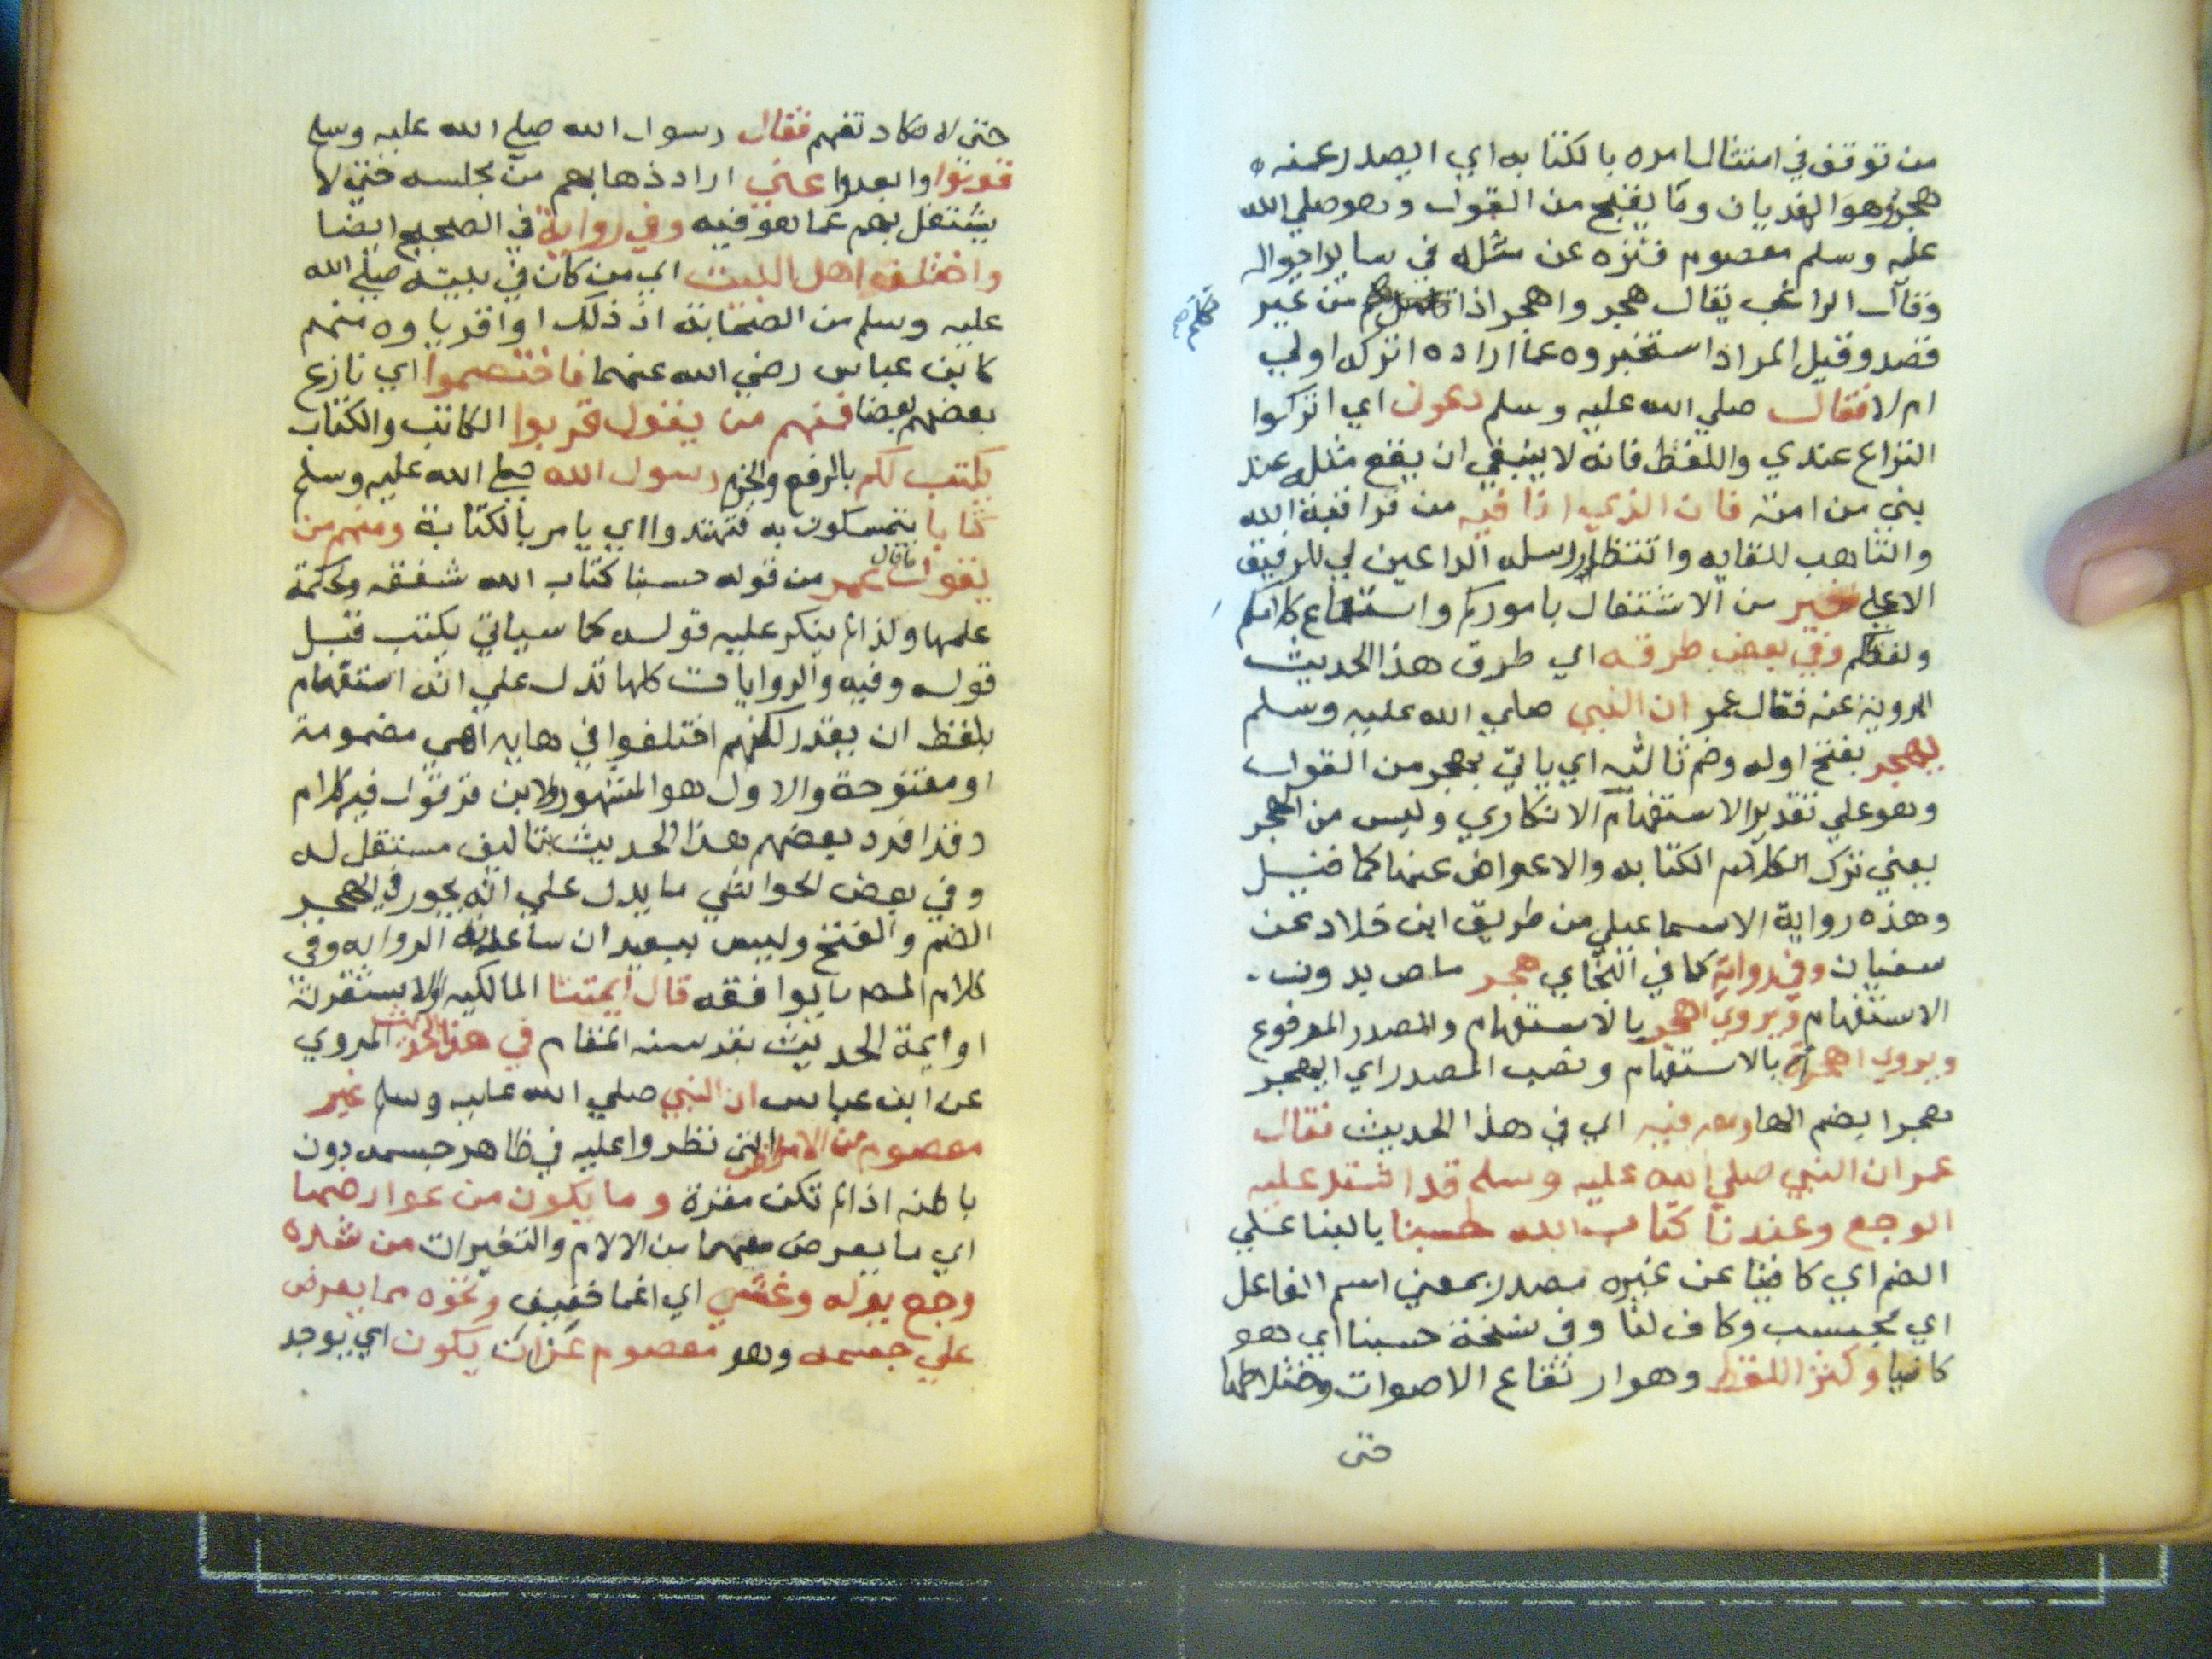 من توقف في امتثال امره بالكتابه اي ايصدر عنه
هجر وهو الهذيان وما يقبح من القول وهو صلي الله
عليه وسلم معصوم منزه عن مثله في ساير احواله
وقال الراغب يقال هجر واهجر اذا تكلم من غير
قصد وقيل المراد استخبروه عما اراده اتركه اولي
ام لا فقال صلي الله عليه وسلم دعوني اي اتركوا
النزاع عندي واللغط فانه لا ينبغي ان يقع مثله عند
نبي من امته فان الذي انا فيه من مراقبة الله
والتاهب للقايه وانتظار رسله الداعين لي للرفيق
الاعلي خير من الاشتغال باموركم واستماع كلامكم
ولغطكم وفي بعض طرقه اي طرق هذا الحديث
المروية عنه فقال عمر ان النبي صلي الله عليه وسلم
يهجر بفتح اوله وضم ثالثه اي ياتي بهجر من القول
وهو علي تقدير الاستفهام الانكاري وليس من الهجر
بمعني ترك الكلام الكتابه والاعراض عنها كما قيل
وهذه رواية الاسماعيلي من طريق ابن خلاد عن
سفيان وفي رواية كما في البخاري هجر ماض بدون
الاستفهام ويروي اهجر بالاستفهام والمصدر المرفوع
ويروي اهجرا بالاستفهام ونصب المصدر اي ايهجر
هجرا بضم الها وفيه اي في هذا الحديث فقال
عمر ان النبي صلي الله عليه وسلم قد اشتد عليه
الوجع وعندنا كتاب الله حسبنا بالبنا علي
الضم اي كافينا عن غيره مصدر بمعني اسم الفاعل
اي محسب وكاف لنا وفي نسخة حسبنا اي هو
كافيا وكثر اللغط وهو ارتفاع الاصوات واختلاطها
حتى
حتى لا تكاد تفهم فقال رسول الله صلي الله عليه وسلم
قوموا وابعدوا عني اراد ذهابهم من مجلسه حتى لا
يشتغل بهم عما هو فيه وفي رواية في الصحيح ايضا
واختلف اهل البيت اي من كان في بيته صلي الله
عليه وسلم من الصحابة اذ ذلك او اقرباوه منهم
كابن عباس رضي الله عنهما فاختصموا اي نازع
بعضهم بعضا فمنهم من يقول قربوا الكاتب والكتاب
يكتب لكم بالرفع والجزم رسول الله صلي الله عليه وسلم
كتابا تتمسكون به فتهتدوا اي يامر بالكتابة ومنهم من
يقول ما قال عمر من قوله حسبنا كتاب الله شفقة ولحكمة
علمها ولذا لم ينكر عليه قوله كما سياتي يكتب قبل
قوله وفيه والروايات كلها تدل علي انه استفهام
بلفظ ان يقدر لكنهم اختلفوا في هايه اهي مضمومة
او مفتوحة والاول هو المشهور ولابن قرقول فيه كلام
وقد افرد بعضهم هذا الحديث بتاليف مستقل له
وفي بعض الحواشي ما يدل علي انه يجوز في الهجر
الضم والفتح وليس ببعيد ان ساعدته الروايه وفي
كلام المص ما يوافقه قال ايمتنا المالكيه او الاشعرية
او ايمة الحديث بقرينة المقام في هذا الحديث المروي
عن ابن عباس ان النبي صلي الله عليه وسلم غير
معصوم من الامراض التي نظروا عليه في ظاهر جسمه دون
باطنه اذا لم تكن منفرة وما يكون من عوارضها
اي ما يعرض منهما من الالام والتغيرات من شده
وجع يؤله وغشي اي اغما خفيف ونحوه مما يعرض
علي جسمه وهو معصوم عن ان يكون اي يوجد
تكلم صح